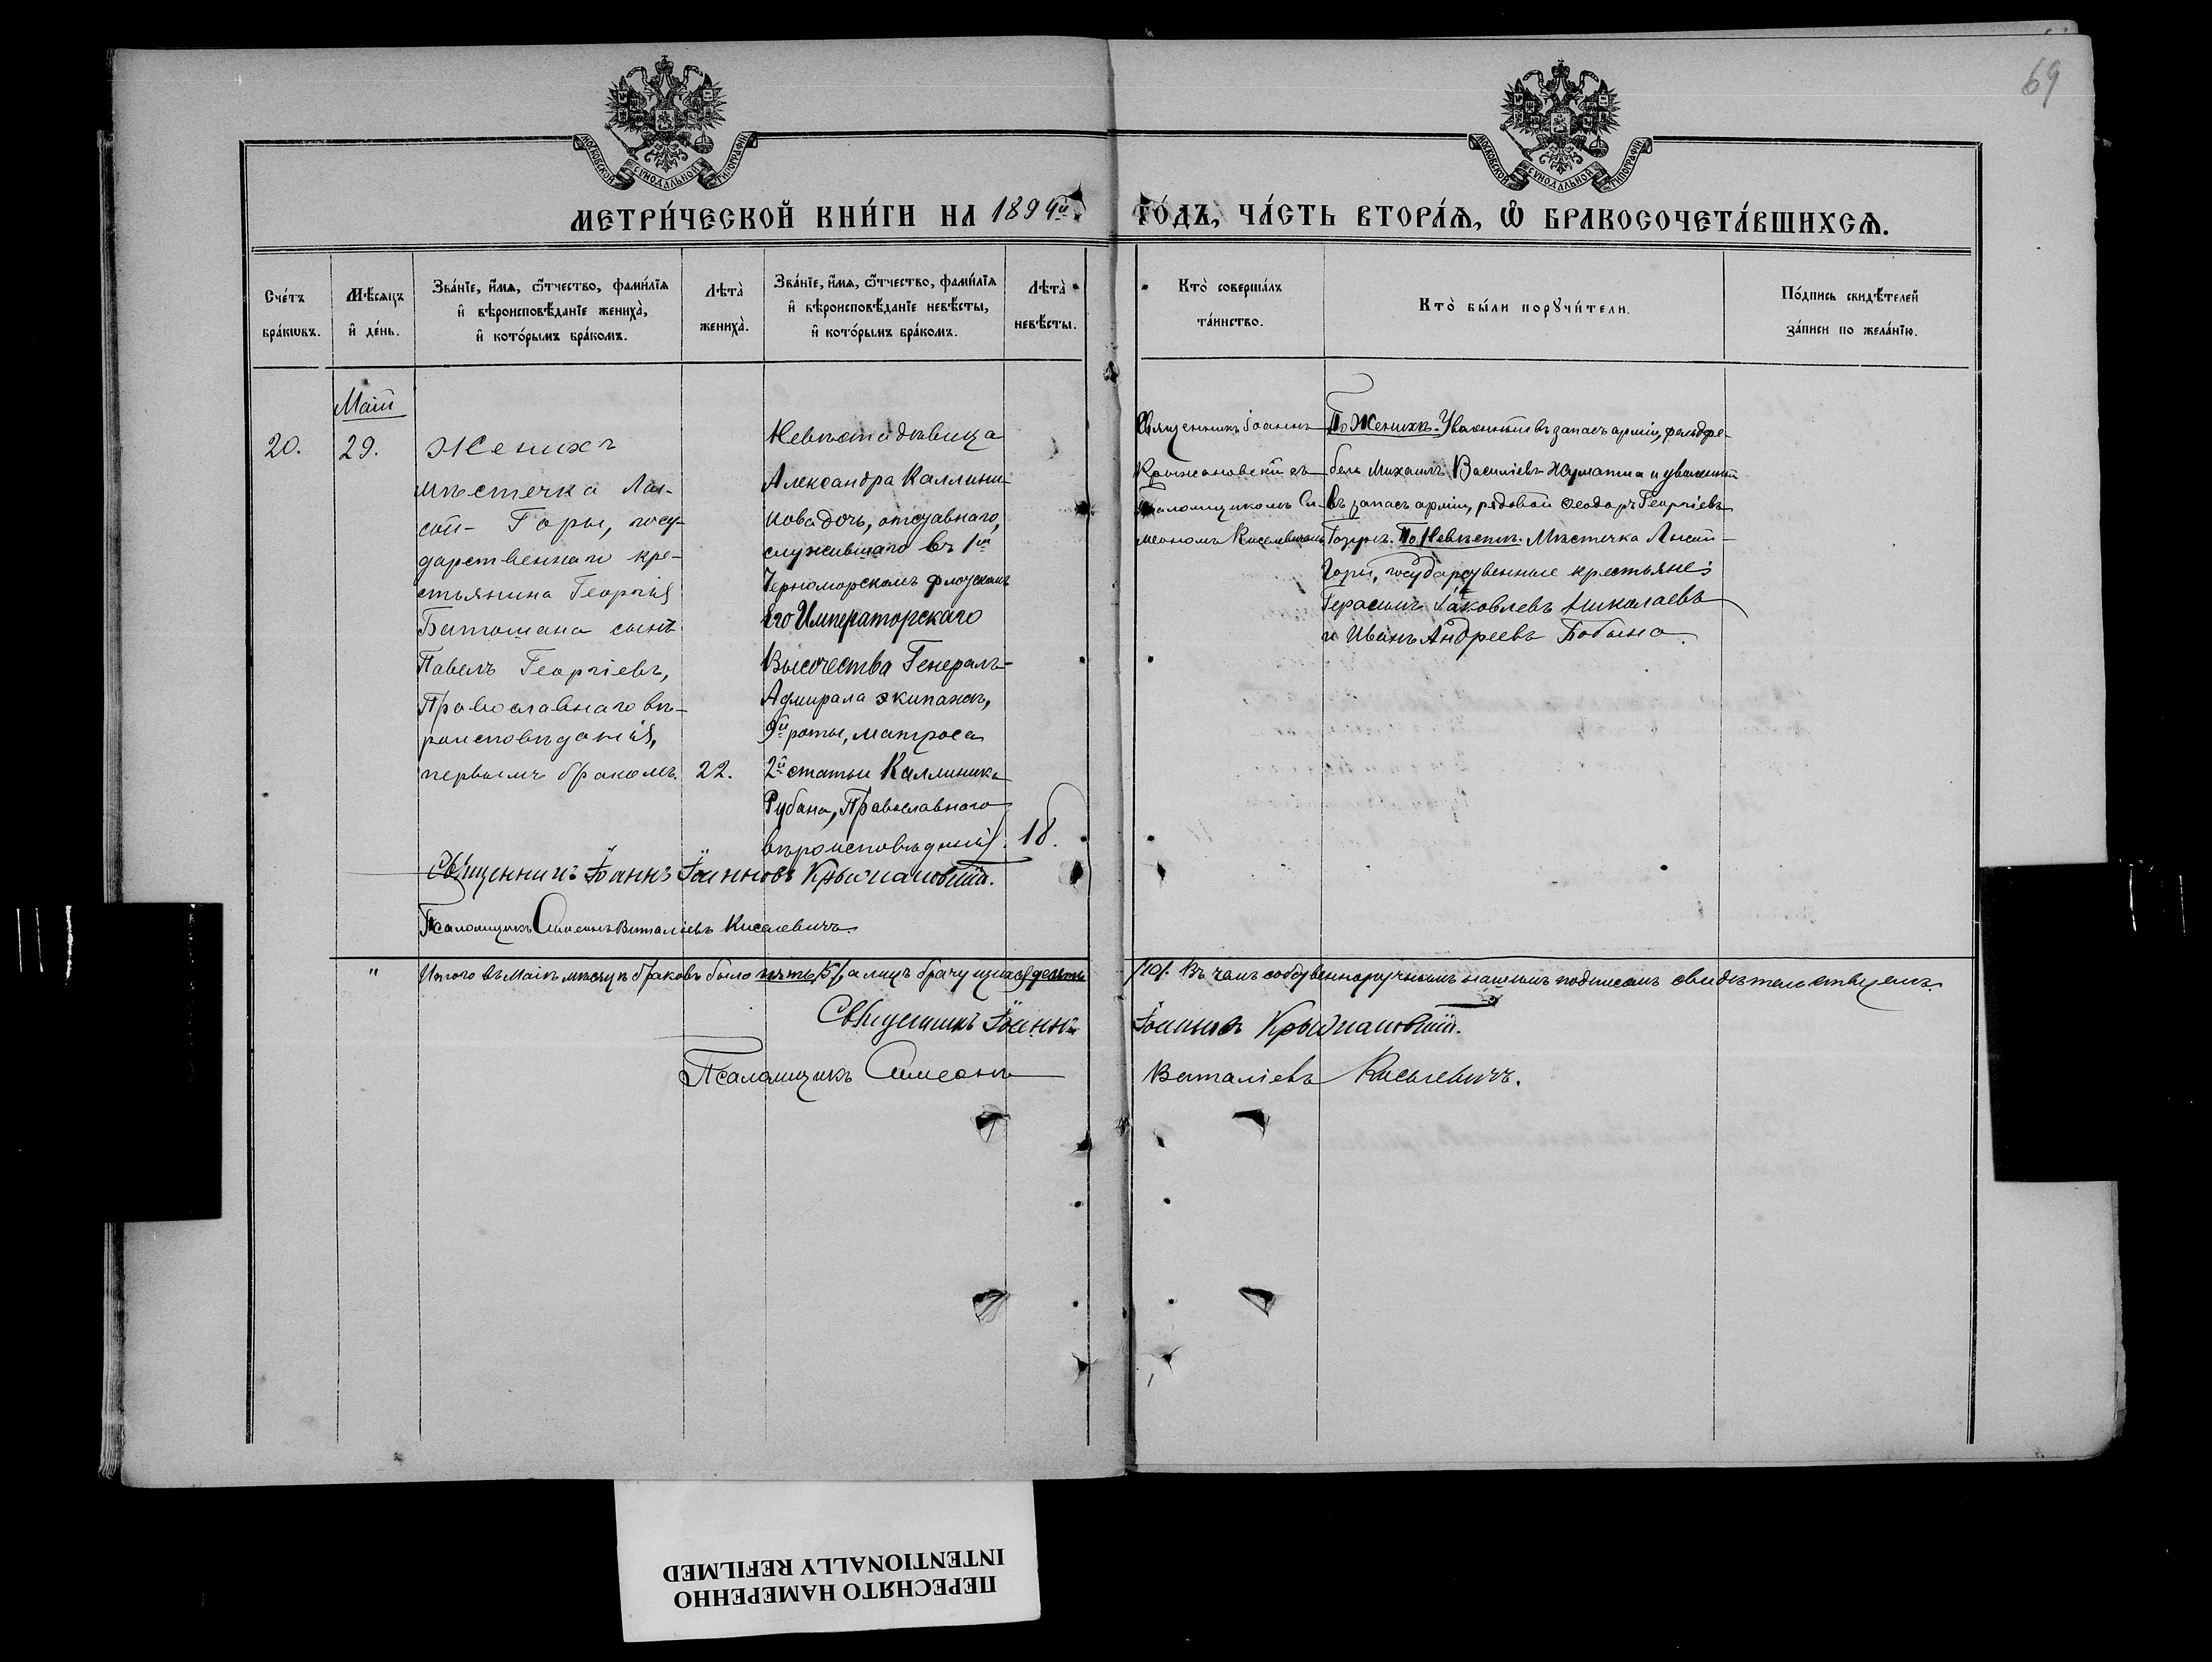 69
МОСКОВСКОЙ СѴНОДАЛЬНОЙ ТИПОГРАФІИ
МОСКОВСКОЙ СѴНОДАЛЬНОЙ ТИПОГРАФІИ
МЕТРИ́ЧЕСКОЙ КНИ́ГИ НА 1894й ГО́ДЪ, ЧА́СТЬ ВТОРА́Ѧ, Ѽ БРАКОСОЧЕТА́ВШИХСѦ.
Сче́тъ
бра́кѡвъ.
Мѣ́сяцъ
и҆ де́нь.
Зва́нїе, и҆́мя, ѻ҆́тчество, фами́лїя
и҆ вѣроисповѣ́данїе жениха̀,
и҆ кото́рымъ бра́комъ.
Лѣта̀
жениха̀.
Зва́нїе, и҆́мя, ѻ҆́тчество, фами́лїя
и҆ вѣроисповѣ́данїе невѣ́сты,
и҆ кото́рымъ бра́комъ.
Лѣта̀
невѣ́сты.
Кто̀ соверша́лъ
та́инство.
Кто̀ бы́ли порꙋчи́тели.
По́дпись свидѣ́телей
за́писи по жела́нїю.
Май
20.
29.
Женихъ
мѣстечка Лы-
сой-Горы, госу-
дарственнаго кре-
стьянина Георгія
Батошана сынъ
Павелъ Георгіевъ,
Православнаго вѣ-
роисповѣданія,
первымъ бракомъ.
22.
Невѣста дѣвица
Александра Каллини-
кова дочь, отставнаго,
служившаго въ 1мъ
Черноморскомъ флотскомъ
Его Императорскаго
Высочества Генералъ-
Адмирала экипажѣ,
9й роты, матроса
2й статьи Каллиника
Рубана, Православнаго
вѣроисповѣданія.
18.
Священникъ Іоаннъ
Крыжановскій съ
Псаломщикомъ Си-
меономъ Киселевичемъ
По Женихѣ. Уволенный въ запасъ арміи, фельдфе-
бель Михаилъ Василіевъ и уволенный
въ запасъ арміи, рядовой Ѳеодоръ Георгіевъ
По Невѣстѣ. Мѣстечка Лысой-
Горы, государственные крестьяне:
Герасимъ Іаковлевъ Николаевъ
и Иванъ Андреевъ Бобына.
Священникъ Іоаннъ Іоанновъ Крыжановскій.
Псаломщикъ Симеонъ Виталіевъ Киселевичъ.
" Итого въ Маѣ мѣсяцѣ браковъ было пять /5/, а лицъ брачущихся десять /10/. Въ чемъ собственноручнымъ нашимъ подписомъ свидѣтельствуемъ.
Священникъ Іоаннъ Іоанновъ Крыжановскій.
Псаломщикъ Симеонъ Виталіевъ Киселевичъ.
ПЕРЕСНЯТО НАМЕРЕННО
INTENTIONALLY REFILMED